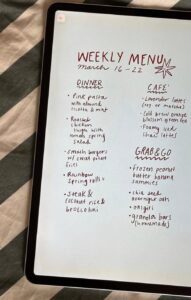 WEEKLY MENU
march 16-22
DINNER
• Pink pasta
ricotta & mint
• Roasted
chicken
thigh with
spring
salad
• smash burgers
w/ sweet potato
fries
• Rainbow
spring rolls
• steak &
coconut rice &
broccolini
CAFE
• Lavender lattes
(icy or matcha)
• Cold brew orange
blossom green tea
(iced lattes)
GRAB&GO
• frozen peanut
butter banana
sammies
• chia seed
overnight oats
• onigiri
• granola bars
(homemade)